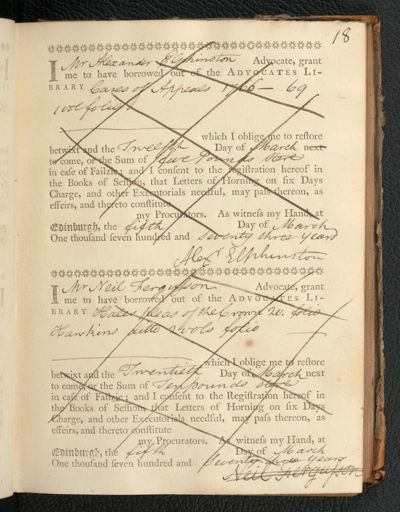 18
I Mr Alexander Elphinston Advocate, grant
me to have borrowed out of the ADVOCATES LI-
BRARY Cases of Appeals 1766 — 69
1 vol folio
which I oblige me to restore
betwixt and the Twelfth Day of March next
to come, or the Sum of five Pounds Sterg
in case of Failzie; and I consent to the registration hereof in
the Books of Session, that Letters of Horning on six Days
Charge, and other Executorials needful, may pass thereon, as
effeirs, and thereto constitute
my Procurators. As witness my Hand, at
Edinburgh, the fifth Day of March
One thousand seven hundred and seventy three years
Alexr Elphinston
I Mr Neil Fergusson Advocate, grant
me to have borrowed out of the ADVOCATES LI-
BRARY Hales pleas of the Crown 2v. folio
Hawkins ditto 2 vols folio
which I oblige me to restore
betwixt and the Twentieth Day of March next
to come, or the Sum of Ten pounds
in case of Failzie; and I consent to the Registration hereof in
the Books of Session, that Letters of Horning on six Days
Charge, and other Executorials needful, may pass thereon, as
effeirs, and thereto constitute
my Procurators. As witness my Hand, at
Edinburgh, the fifth Day of March
One thousand seven hundred and seventy three years
Neil Fergusson